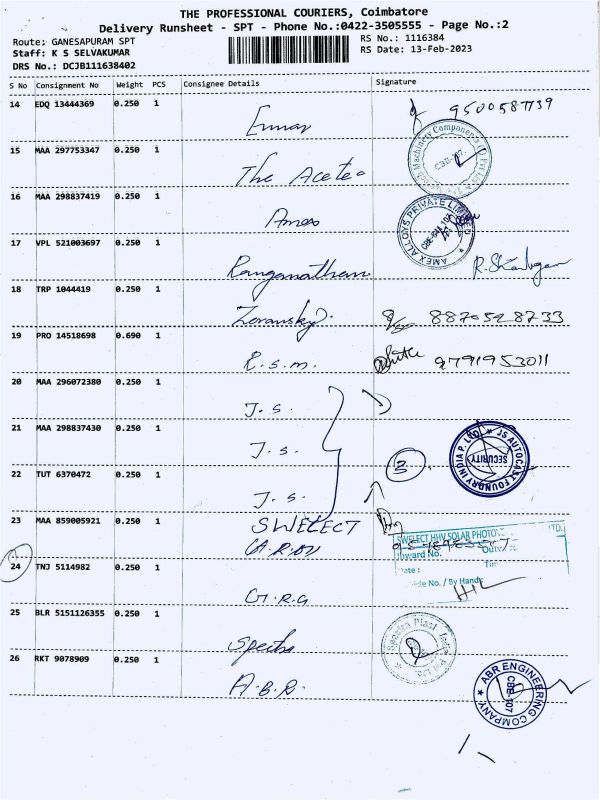 THE PROFESSIONAL COURIERS, Coimbatore
Delivery Runsheet - SPT - Phone No.:0422-3505555 - Page No.:2
Route: GANESAPURAM SPT
Staff: K S SELVAKUMAR
DRS No.: DCJB111638402
RS No.: 1116384
RS Date: 13-Feb-2023
S No Consignment No Weight PCS Consignee Details Signature
14 EDQ 13444369 0.250 1 9500587739
15 MAA 297753347 0.250 1 The Acetec
16 MAA 298837419 0.250 1 AMEX ALLOYS PRIVATE LIMITED
17 VPL 521003697 0.250 1 Ranganathan
18 TRP 1044419 0.250 1 8870528733
19 PRO 14518698 0.690 1 R.S.M. 9791953011
20 MAA 296072380 0.250 1 J.S.
21 MAA 298837430 0.250 1 J.S. JS AUTOCAST FOUNDRY INDIA P. LTD SECURITY
22 TUT 6370472 0.250 1 J.S. 3
23 MAA 859005921 0.250 1 SWELECT SWELECT HHV SOLAR PHOTO
Inward No.
Vehicle No. / By Hand:
24 TNJ 5114982 0.250 1 G.R.G
25 BLR 5151126355 0.250 1 Spectra
26 RKT 9078909 0.250 1 A.B.R. ABR ENGINEERING COMPANY CBE-107